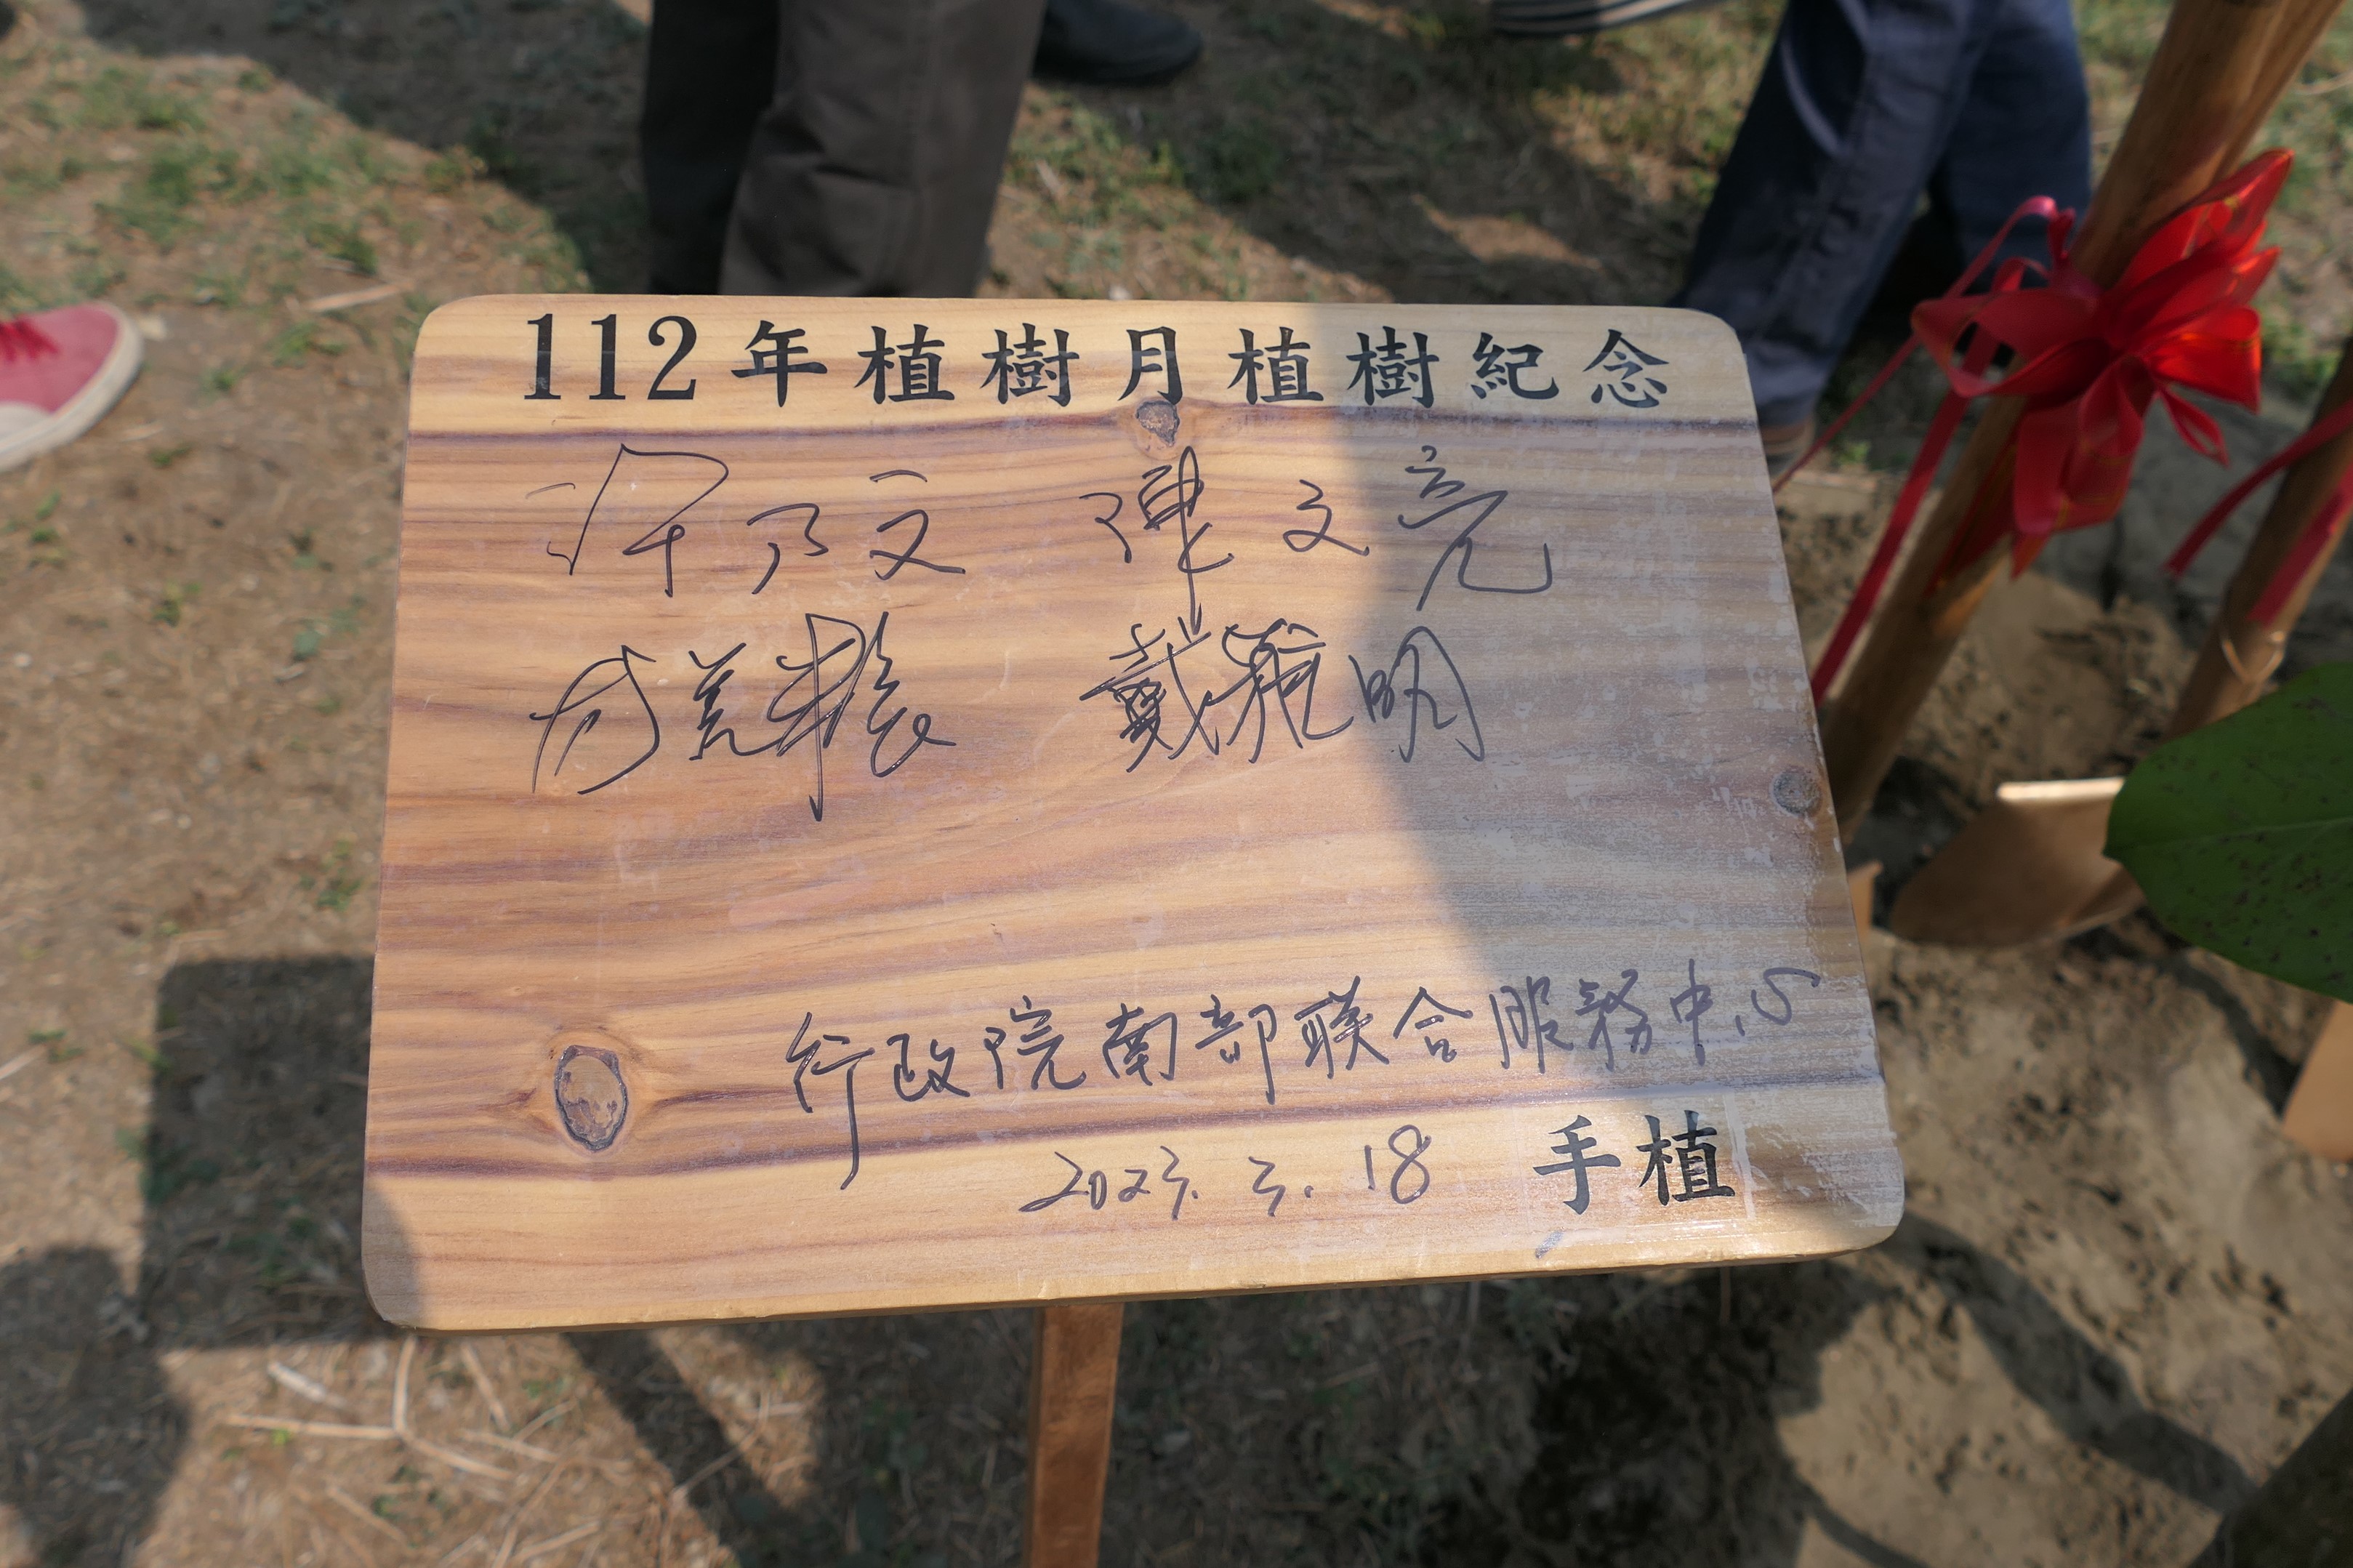 112年植樹月植樹紀念
許乃文 陳文亮
戴雅明
行政院南部联合服務中心
2023.3.18 手植